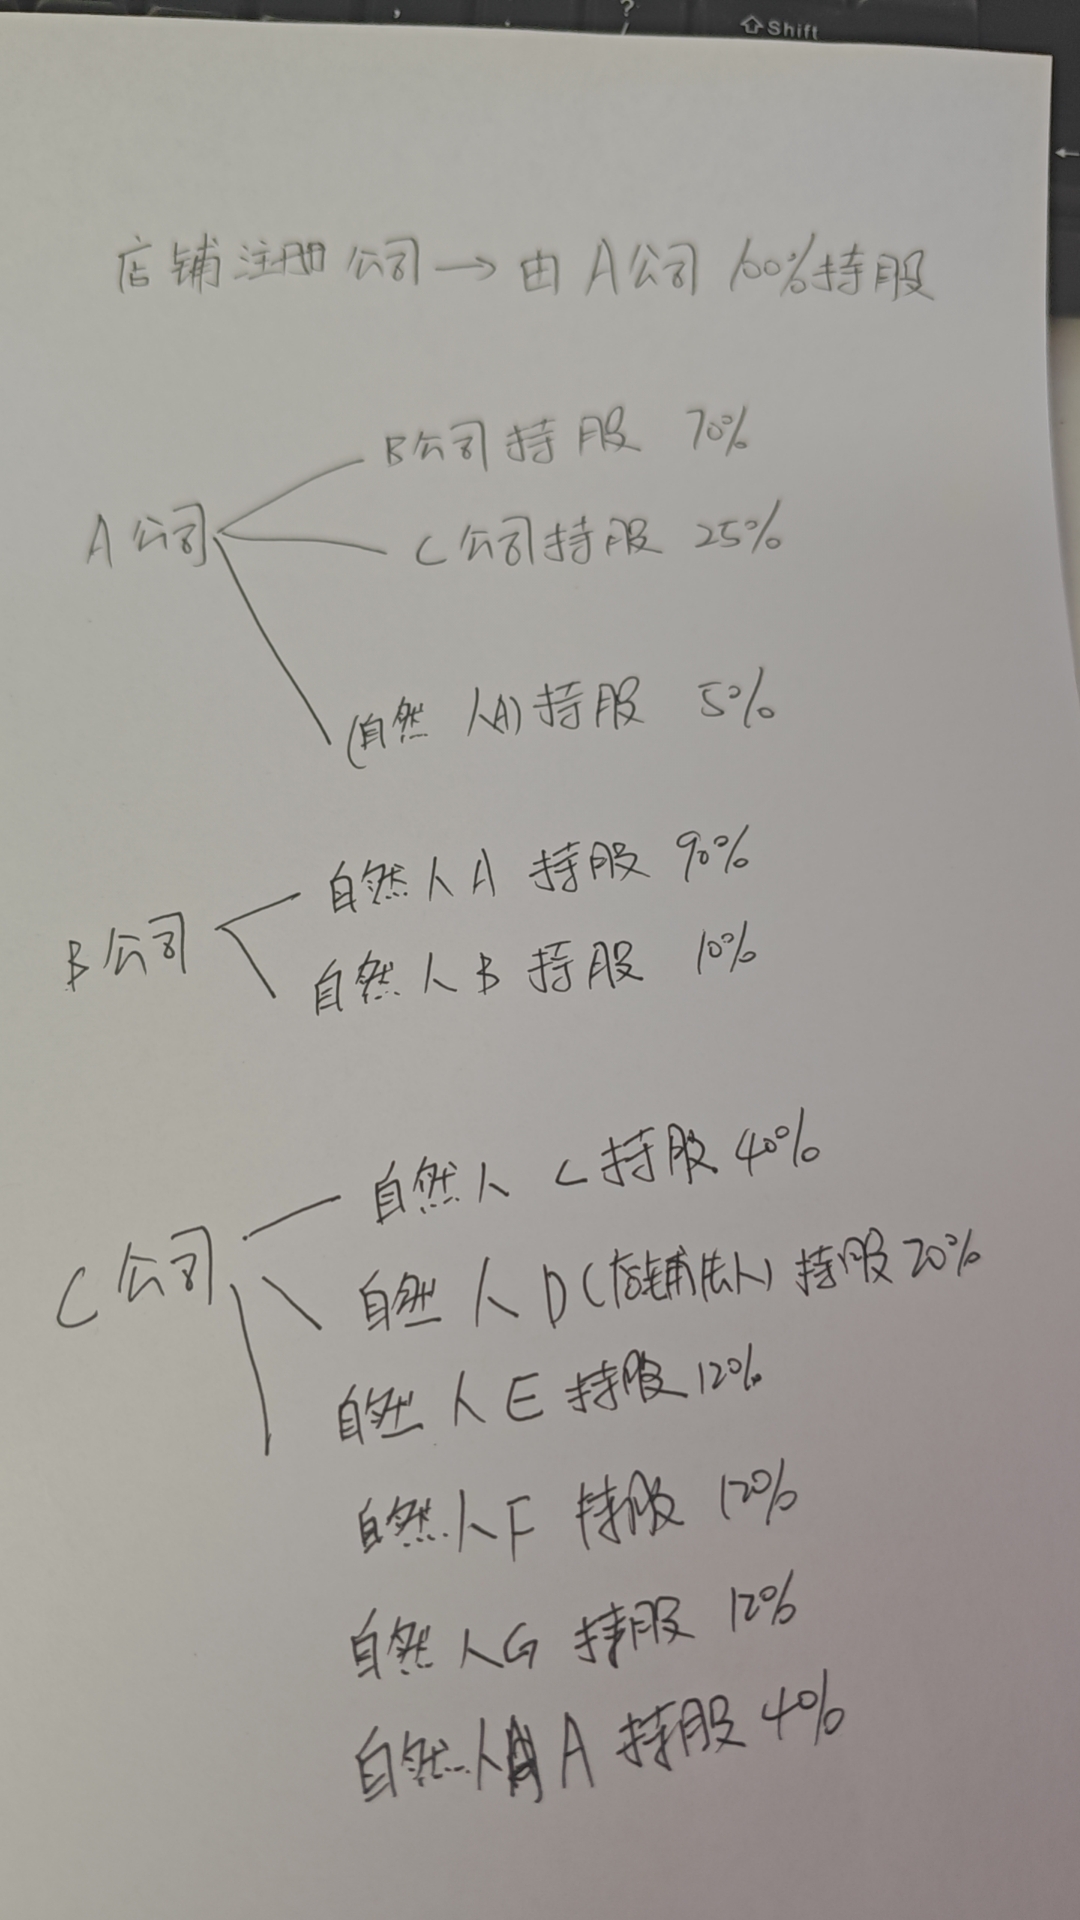 Shift
店铺注册公司→由A公司100%持股
B公司持股 70%
A公司
C公司持股 25%
(自然人A)持股 5%
自然人A 持股 90%
B公司
自然人B 持股 10%
自然人 C持股 40%
C公司
自然人D(店铺法人)持股20%
自然人E 持股12%
自然人F 持股 12%
自然人G 持股 12%
自然人A 持股 4%